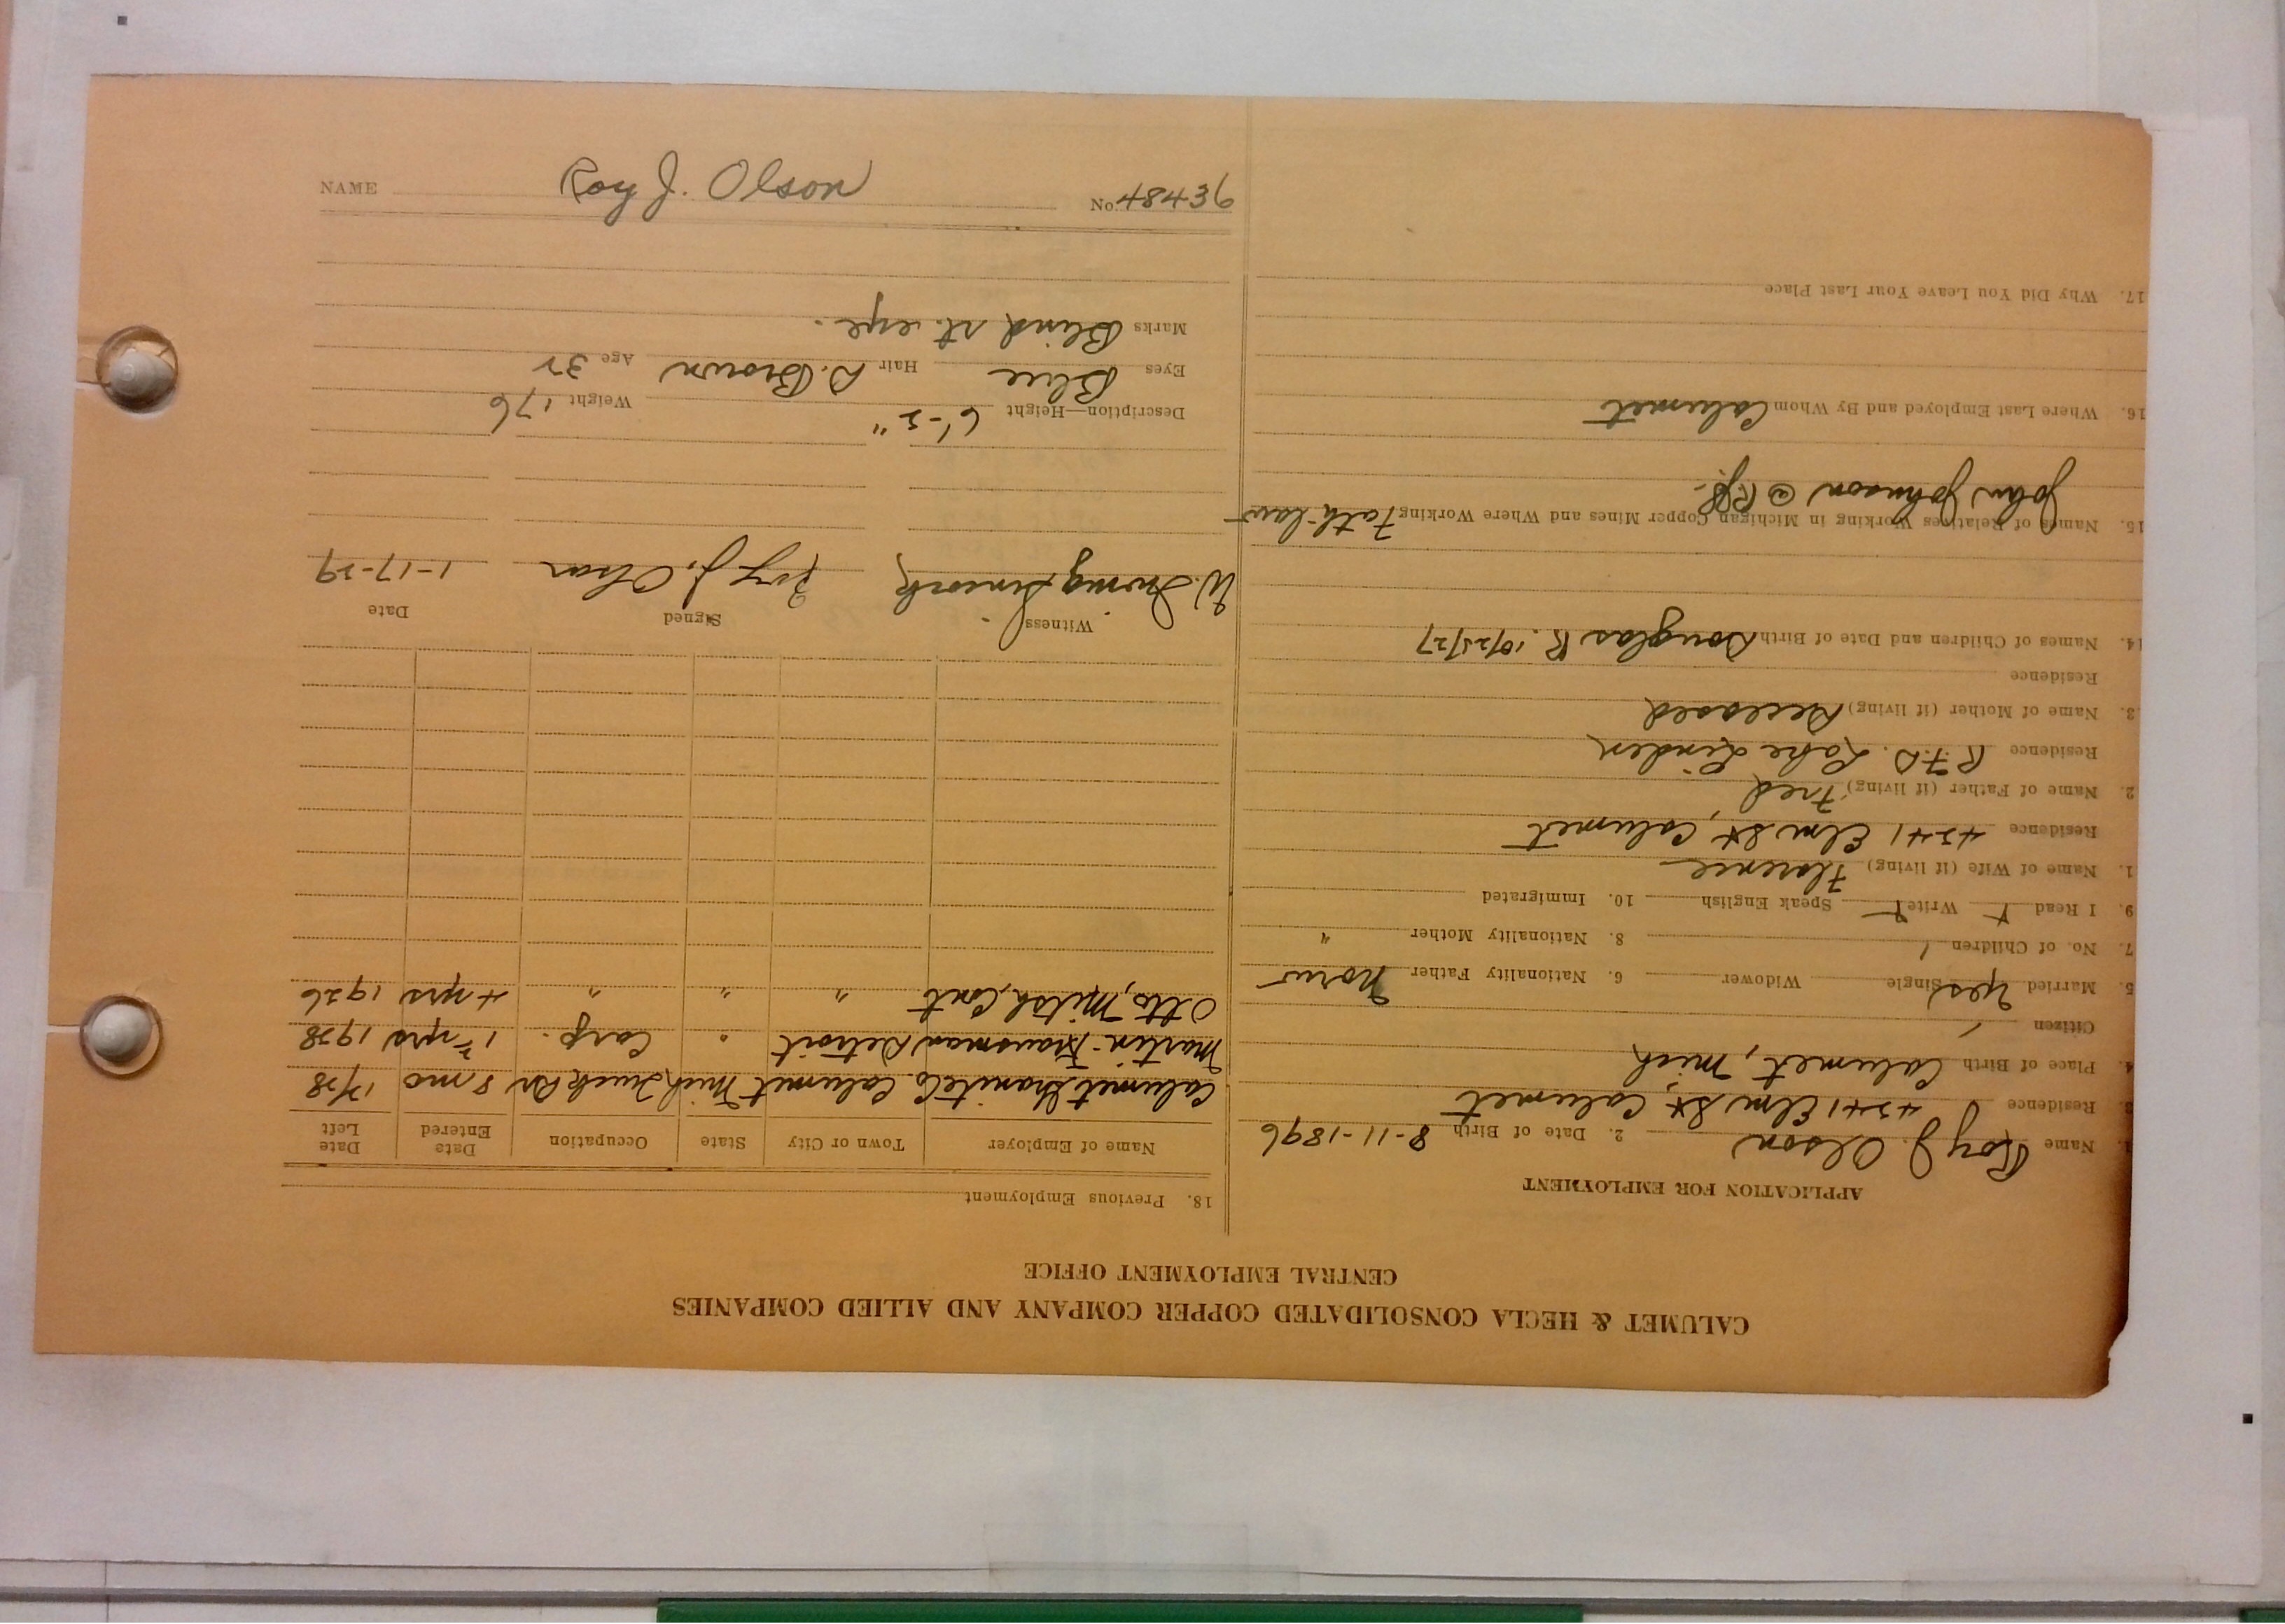 CALUMET & HECLA CONSOLIDATED COPPER COMPANY AND ALLIED COMPANIES
CENTRAL EMPLOYMENT OFFICE
APPLICATION FOR EMPLOYMENT
1. Name Roy J. Olson 2. Date of Birth 8-11-1896
3. Residence 4241 Elm St Calumet
4. Place of Birth Calumet, Mich
Citizen
5. Married yes Single Widower 6. Nationality Father Norw
7. No. of Children 1 8. Nationality Mother "
9. I Read Write Speak English 10. Immigrated
1. Name of Wife (if living) Florence
Residence 4241 Elm St, Calumet
2. Name of Father (if living) Fred
Residence R.F.D. Lake Linden
3. Name of Mother (if living) Deceased
Residence
14. Names of Children and Date of Birth Douglas R. 10/25/27
15. Names of Relatives Working in Michigan Copper Mines and Where Working Fath-law
John Johnson @
16. Where Last Employed and By Whom Calumet
17. Why Did You Leave Your Last Place
18. Previous Employment
Name of Employer Town or City State Occupation Date Entered Date Left
Calumet Granite Co. Calumet Mich Truck Dr 8 mo 1/28
Martin Detroit " Carp. 1928
Otto, Cont " " " 4 yrs 1926
Witness Signed Date
W. Roy J. Olson 1-17-29
Description—Height 6'-2" Weight 176
Eyes Blue Hair D. Brown Age 32
Marks Blind rt. eye.
NAME Roy J. Olson No. 48436